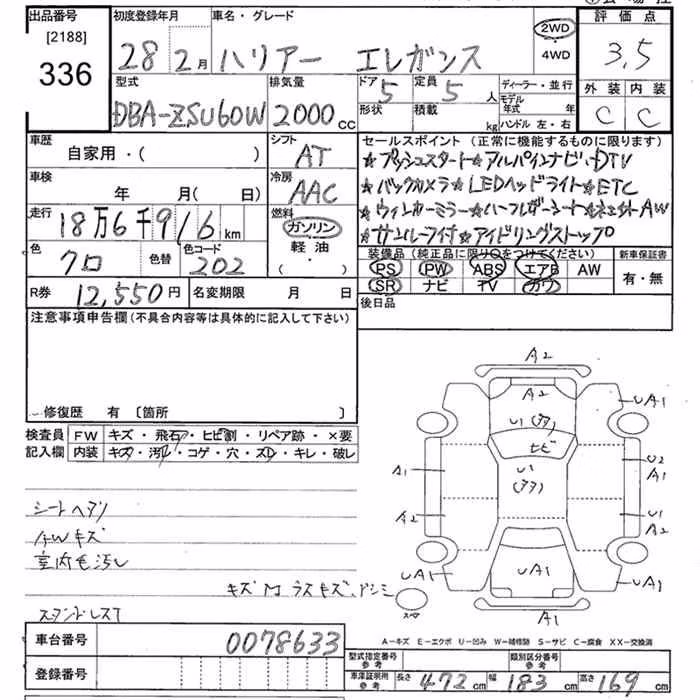 出品番号 [2188] 336
初度登録年月 28 2月
車名・グレード ハリアー エレガンス
2WD 4WD
評価点 3,5
外装 内装
C C
型式 DBA-ZSU60W
排気量 2000cc
ドア 5
形状
定員 5人
積載 kg
ディーラー・並行
モデル年式 年
ハンドル 左・右
車歴 自家用・( )
シフト AT
車検 年 月( 日)
冷房 AAC
走行 18万6千916km
燃料 ガソリン 軽油 ・( )
色 クロ 色替
色コード 202
R券 12,550円
名変期限 月 日
セールスポイント(正常に機能するものに限ります)
★プッシュスタート★アルパインナビ、DTV
★バックカメラ★LEDヘッドライト★ETC
★ウィンカーミラー★ハーフレザーシート★ AW
★ アイドリングストップ
装備品(純正品に限り○をつけてください)
PS PW ABS エアB AW
SR ナビ TV カワ
新車保証書
有・無
後日品
注意事項申告欄(不具合内容等は具体的に記入して下さい)
修復歴 有 〔箇所 〕
検査員記入欄
FW キズ・飛石・ヒビ割・リペア跡・×要
内装 キズ・汚レ・コゲ・穴・スレ・キレ・破レ
シートヘタリ
AWキズ
室内毛汚し
キズ スキズ、
スタンドレスT
A2
A2
U1
ヒビ
U1
UA1
A1
UA1
U2
A1
A1
A2
U1
A2
UA1
UA1
UA1
A1
A－キズ E－エクボ U－凹み W－補修跡 S－サビ C－腐食 XX－交換済
車台番号 0078633
登録番号
型式指定番号 参考
類別区分番号 参考
車庫証明用 参考 長さ 472cm 幅 183cm 高さ 169cm